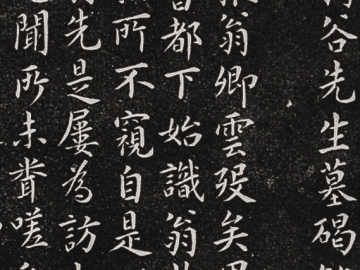 谷先生墓碣
翁卿雲歿矣
都下始識翁
所不窺自是
先是屢為訪
聞所未甞嗟